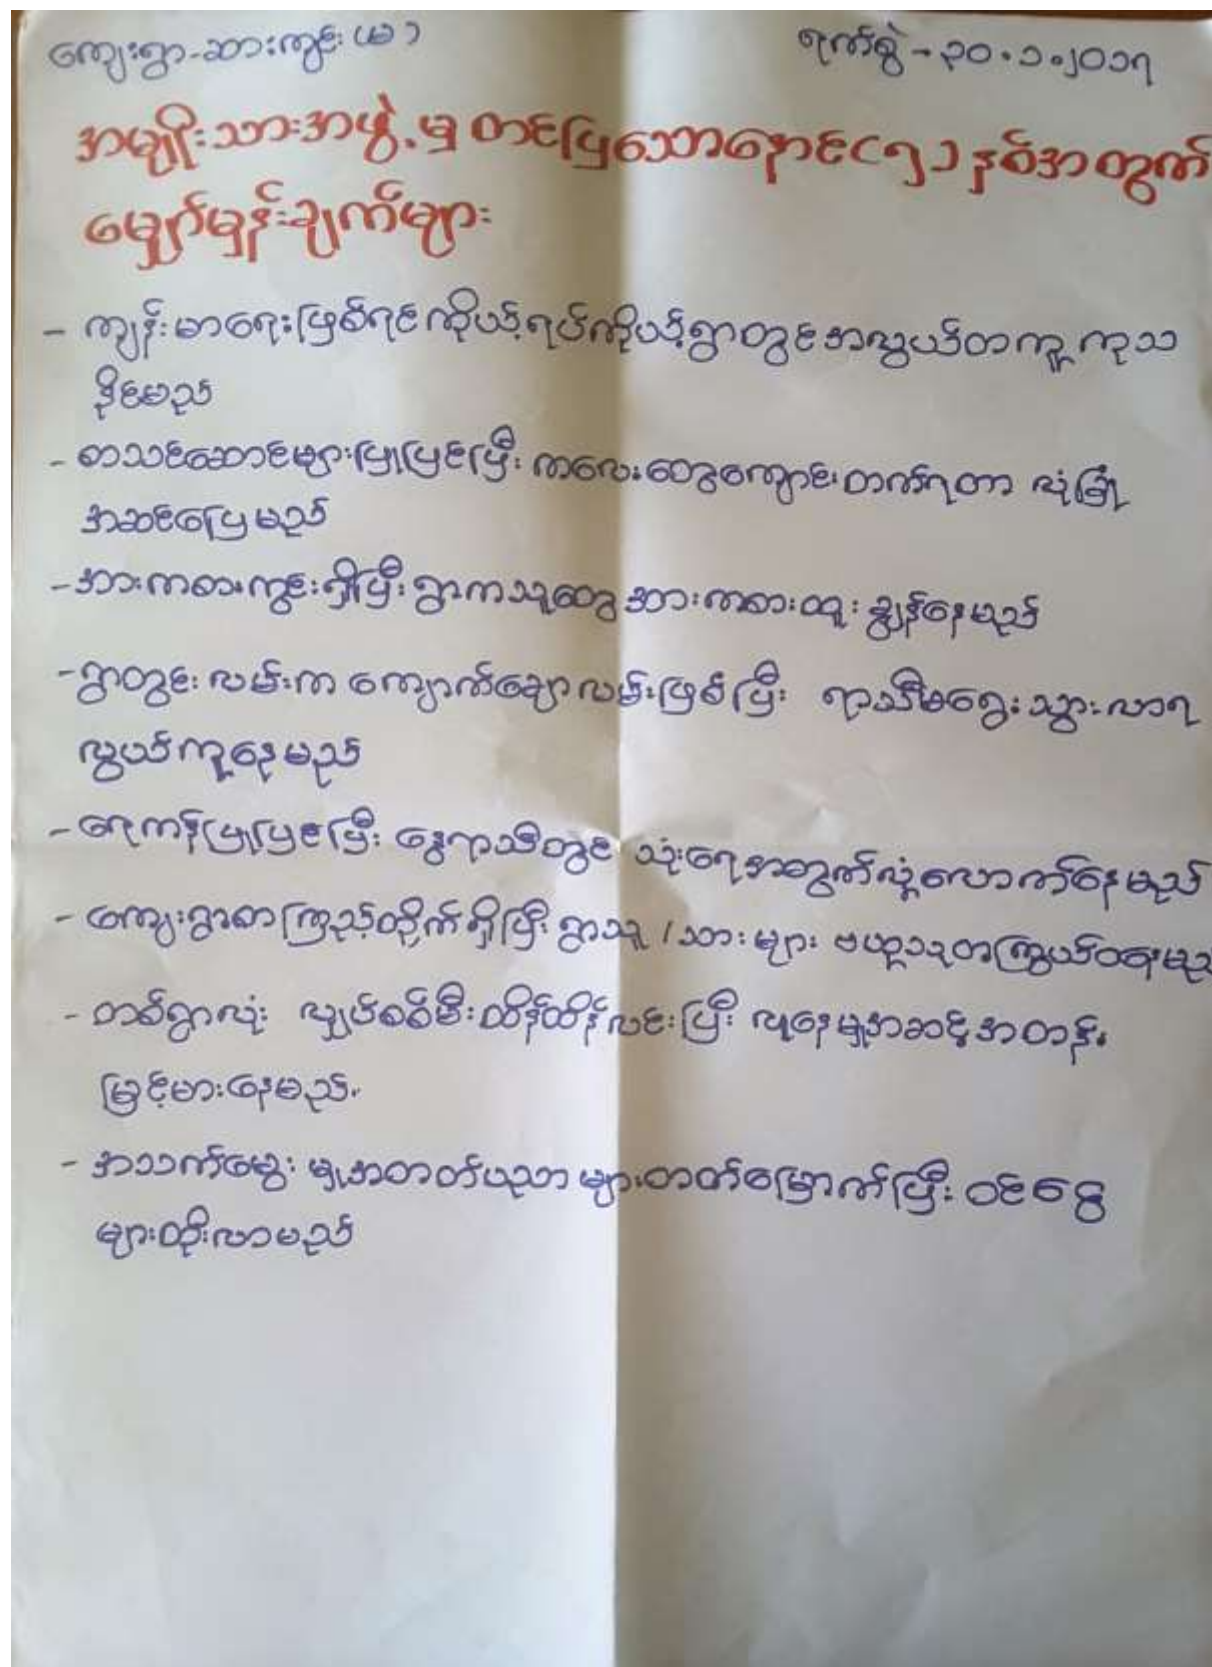 ကျေးရွာ-ဆားကွင်း(မ)
ရက်စွဲ - ၃၀.၁.၂၀၁၇
အမျိုးသားအဖွဲ့မှ တင်ပြသောနောင်(၅)နှစ်အတွက်
မျှော်မှန်းချက်များ
- ကျန်းမာရေးဖြစ်ရင် ကိုယ့်ရပ်ကိုယ့်ရွာတွင် အလွယ်တကူ ကုသ
နိုင်မည်
- စာသင်ဆောင်များပြုပြင်ပြီး ကလေးတွေကျောင်းတက်ရတာ လုံခြုံ
အဆင်ပြေမည်
- အားကစားကွင်းရှိပြီး ရွာကသူတွေ အားကစားထူးချွန်နေမည်
- ရွာတွင်းလမ်းက ကျောက်ချောလမ်းဖြစ်ပြီး ရာသီမရွေးသွားလာရ
လွယ်ကူနေမည်
- ရေကန်ပြုပြင်ပြီး နွေရာသီတွင် သုံးရေအတွက်လုံလောက်နေမည်
- ကျေးရွာစာကြည့်တိုက်ရှိပြီး ရွာသူ/သားများ ဗဟုသုတကြွယ်ဝနေမည်
- တစ်ရွာလုံး လျှပ်စစ်မီးထိန်ထိန်လင်းပြီး လူနေမှုအဆင့်အတန်း
မြင့်မားနေမည်.
- အသက်မွေးမှုအတတ်ပညာများတတ်မြောက်ပြီး ဝင်ငွေ
များတိုးလာမည်